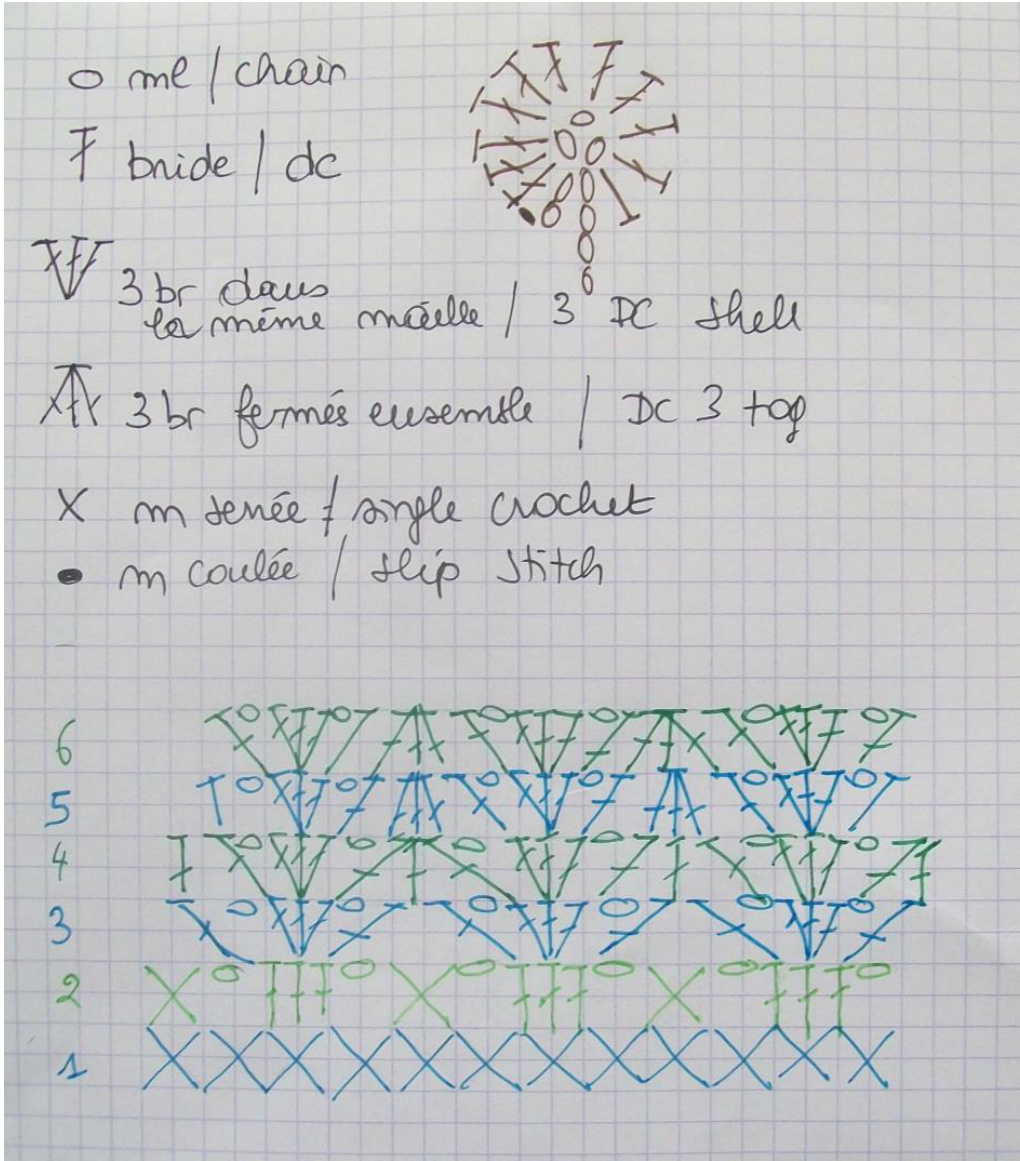 o ml / chain
bride / dc
3 br dans
la même maille / 3 DC shell
3 br fermés ensemble / DC 3 tog
X m serrée / single crochet
• m coulée / slip stitch
6
5
4
3
2
1